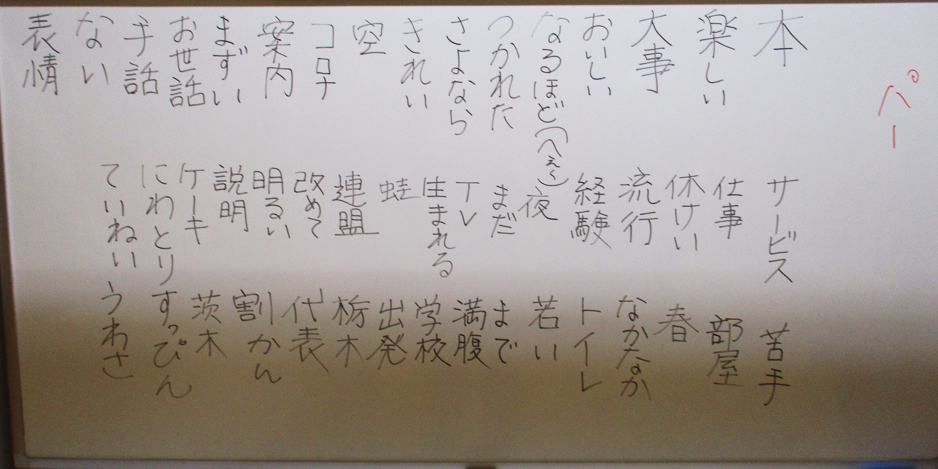 パー
本
楽しい
大事
おいしい
なるほど(へぇ〜)
つかれた
さよなら
きれい
空
コロナ
案内
まずい
お世話
手話
ない
表情
サービス
仕事
休けい
流行
経験
夜
まだ
TV
生まれる
蛙
連盟
改めて
明るい
説明
ケーキ
にわとり
ていねい
苦手
部屋
春
なかなか
トイレ
若い
まで
満腹
学校
出発
栃木
代表
割かん
茨木
すっぴん
うわさ